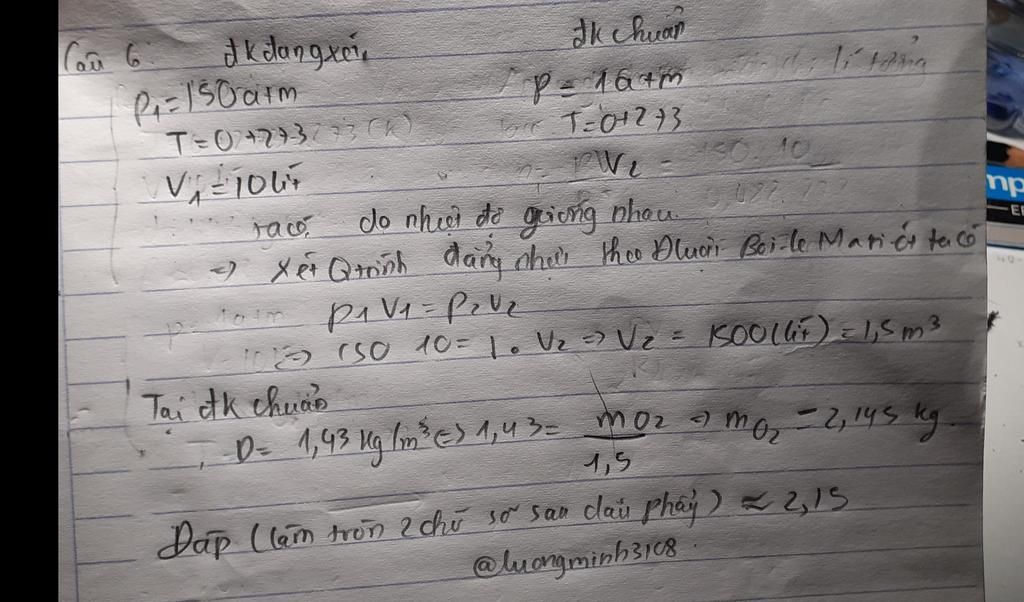 Câu 6: đk đang xét, đk chuẩn
P1 = 150 atm P = 1 atm
T = 0 + 273 T = 0 + 273
V1 = 10 lít PV2 = 150. 10
ta có, do nhiệt độ giống nhau.
=> Xét Q trình đẳng nhiệt theo Đluật Bôi-lơ Mari-ốt ta có
P1 V1 = P2 V2
=> 150 10 = 1. V2 => V2 = 1500 (lít) = 1,5 m³
Tại đk chuẩn
D = 1,43 kg/m³ <=> 1,43 = mO2 / 1,5 => mO2 = 2,145 kg.
Đáp (làm tròn 2 chữ số sau dấu phẩy) ≈ 2,15
@luongminh3108.